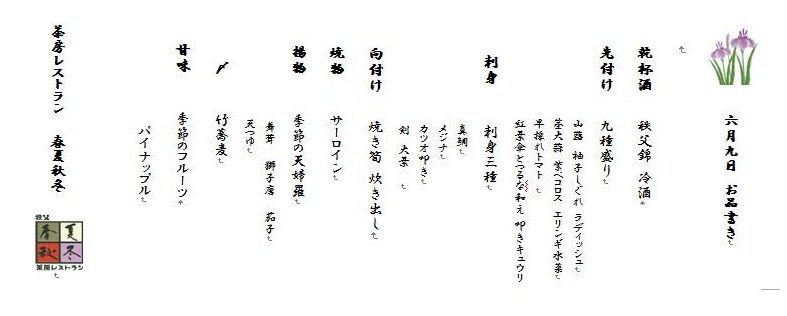 六月九日 お品書き
乾杯酒 秩父錦 冷酒
先付け 九種盛り
山蕗 柚子しぐれ ラディッシュ
茎大蒜 紫ペコロス エリンギ水菜
早採れトマト
紅葉傘とつるな和え 叩きキュウリ
刺身 刺身三種
真鯛
メジナ
カツオ叩き
剣 大葉
向付け 焼き筍 炊き出し
焼物 サーロイン
揚物 季節の天婦羅
舞茸 獅子唐 茄子
天つゆ
〆 竹蕎麦
甘味 季節のフルーツ
パイナップル
茶房レストラン 春夏秋冬
秩父
春夏
秋冬
茶房レストラン